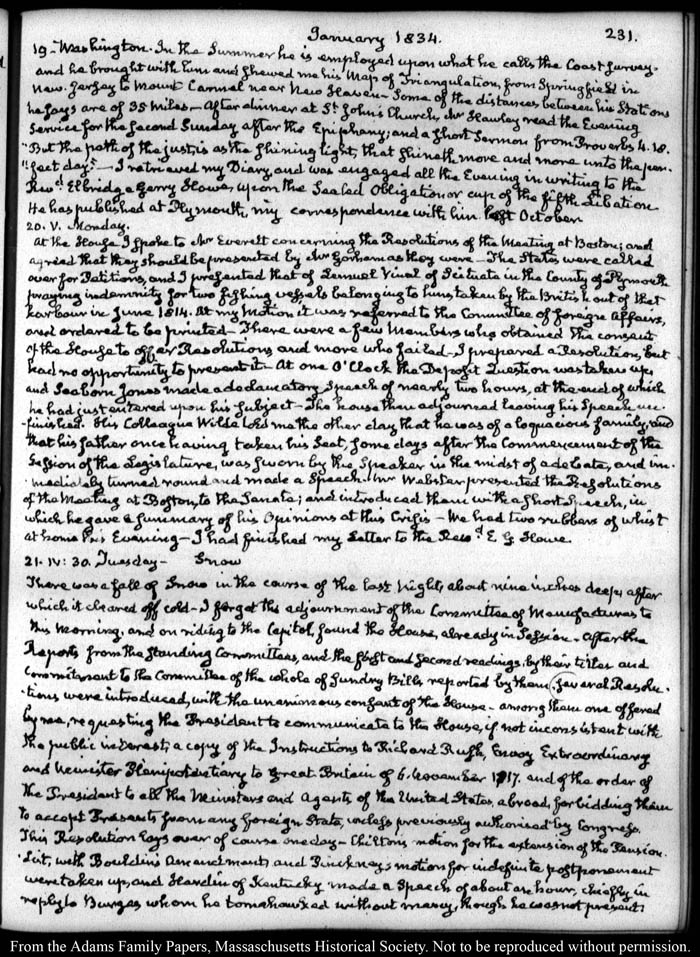 January 1834.
231.
19-Washington. In the Summer he is employed upon what he calls the Coast Survey.
and he brought with him and shewed me his Map of Triangulation, from Springfield in
New-Jersey to Mount Carmel near New Haven - Some of the distances between his Stations
he says are of 35 miles - After dinner at St. John's Church, Mr Hawley read the Evening
Service for the second Sunday after the Epiphany; and a short Sermon from Proverbs 4.18.
"But the path of the just, is as the shining light, that shineth more and more unto the per-
"fect day." - I retrieved my Diary, and was engaged all the Evening in writing to the
Revd. Elbridge Gerry Howe, upon the Sealed Obligation or cup of the fifth Libation
He has published at Plymouth, my correspondence with him last October
20. V. Monday.
At the House I spoke to Mr Everett concerning the Resolutions of the Meeting at Boston; and
agreed that they should be presented by Mr Gorham as they were - The States were called
over for Petitions, and I presented that of Lemuel Vinal of Scituate in the County of Plymouth
praying indemnity for two fishing vessels belonging to him taken by the British out of that
harbour in June 1814. At my Motion it was referred to the Committee of foreign Affairs,
and ordered to be printed - There were a few Members who obtained the consent
of the House to offer Resolutions, and more who failed - I prepared a Resolution, but
had no opportunity to present it - At one O'Clock the Deposit Question was taken up
and Seaborn Jones made a declamatory Speech of nearly two hours, at the end of which
he had just entered upon his Subject - The house then adjourned leaving his Speech un-
-finished. His Colleague Wilde told me the other day that he was of a loquacious family, and
that his father once having taken his Seat, some days after the Commencement of the
Session of the Legislature, was sworn by the Speaker in the midst of a debate, and im-
-mediately turned round and made a Speech. Mr Webster presented the Resolutions
of the Meeting at Boston, to the Senate; and introduced them with a short Speech, in
which he gave a summary of his Opinions at this Crisis - We had two rubbers of whist
at home this Evening - I had finished my Letter to the Revd. E. G. Howe.
21. IV:30. Tuesday - Snow
There was a fall of Snow in the course of the last Night, about nine inches deep, after
which it cleared off cold - I forgot the adjournment of the Committee of Manufactures to
this morning, and on riding to the Capitol, found the House, already in Session. After the
Reports from the standing Committees, and the first and second readings by their titles and
commitment to the Committee of the whole of sundry Bills reported by them, several Resolu-
-tions were introduced, with the unanimous consent of the House - among them one offered
by me, requesting the President to communicate to the House, if not inconsistent with
the public interest, a copy of the Instructions to Richard Rush, Envoy Extraordinary
and Minister Plenipotentiary to Great Britain of 6. November 1817. and of the order of
the President to all the Ministers and Agents of the United States, abroad, forbidding them
to accept Presents from any foreign State, unless previously authorised by Congress.
This Resolution lays over of course one day - Chilton's motion for the extension of the Pension.
List, with Bouldin's Amendment, and Pinckney's motion for indefinite postponement
were taken up, and Hardin of Kentucky made a Speech of about an hour, chiefly in
reply to Burges, whom he tomahawked without mercy, though he was not present.
From the Adams Family Papers, Massachusetts Historical Society. Not to be reproduced without permission.